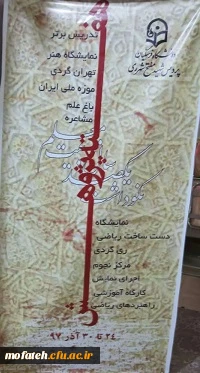 دانشگاه فرهنگیان
پردیس شهید مفتح شهرری
هفته پژوهش
تدریس برتر
نمایشگاه هنر
تهران گردی
موزه ملی ایران
باغ علم
مشاعره
نمایشگاه
دست ساخت ریاضی
ری گردی
مرکز نجوم
اجرای نمایش
کارگاه آموزشی
راهبردهای ریاضی
۲۴ تا ۳۰ آذر ۹۷
mofateh.cfu.ac.ir